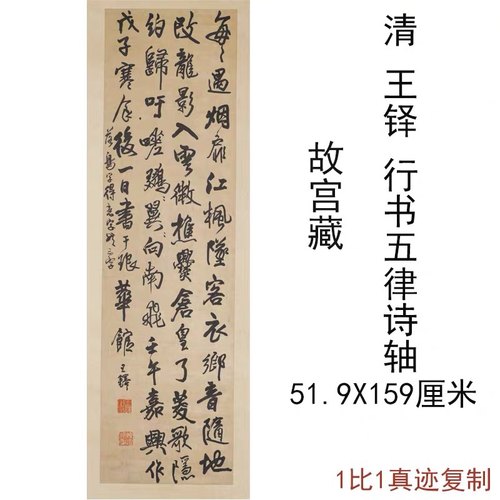 清 王铎 行书五律诗轴
故宫藏
51.9X159厘米
1比1真迹复制
每〻遇烟霏江楓墜客衣鄉音隨地
改龍影入雲微樵爨倉皇了菱歌隱
約歸吁嗟翼向南飛壬午嘉興作
戊子寒食後一日書于琅華館 王鐸